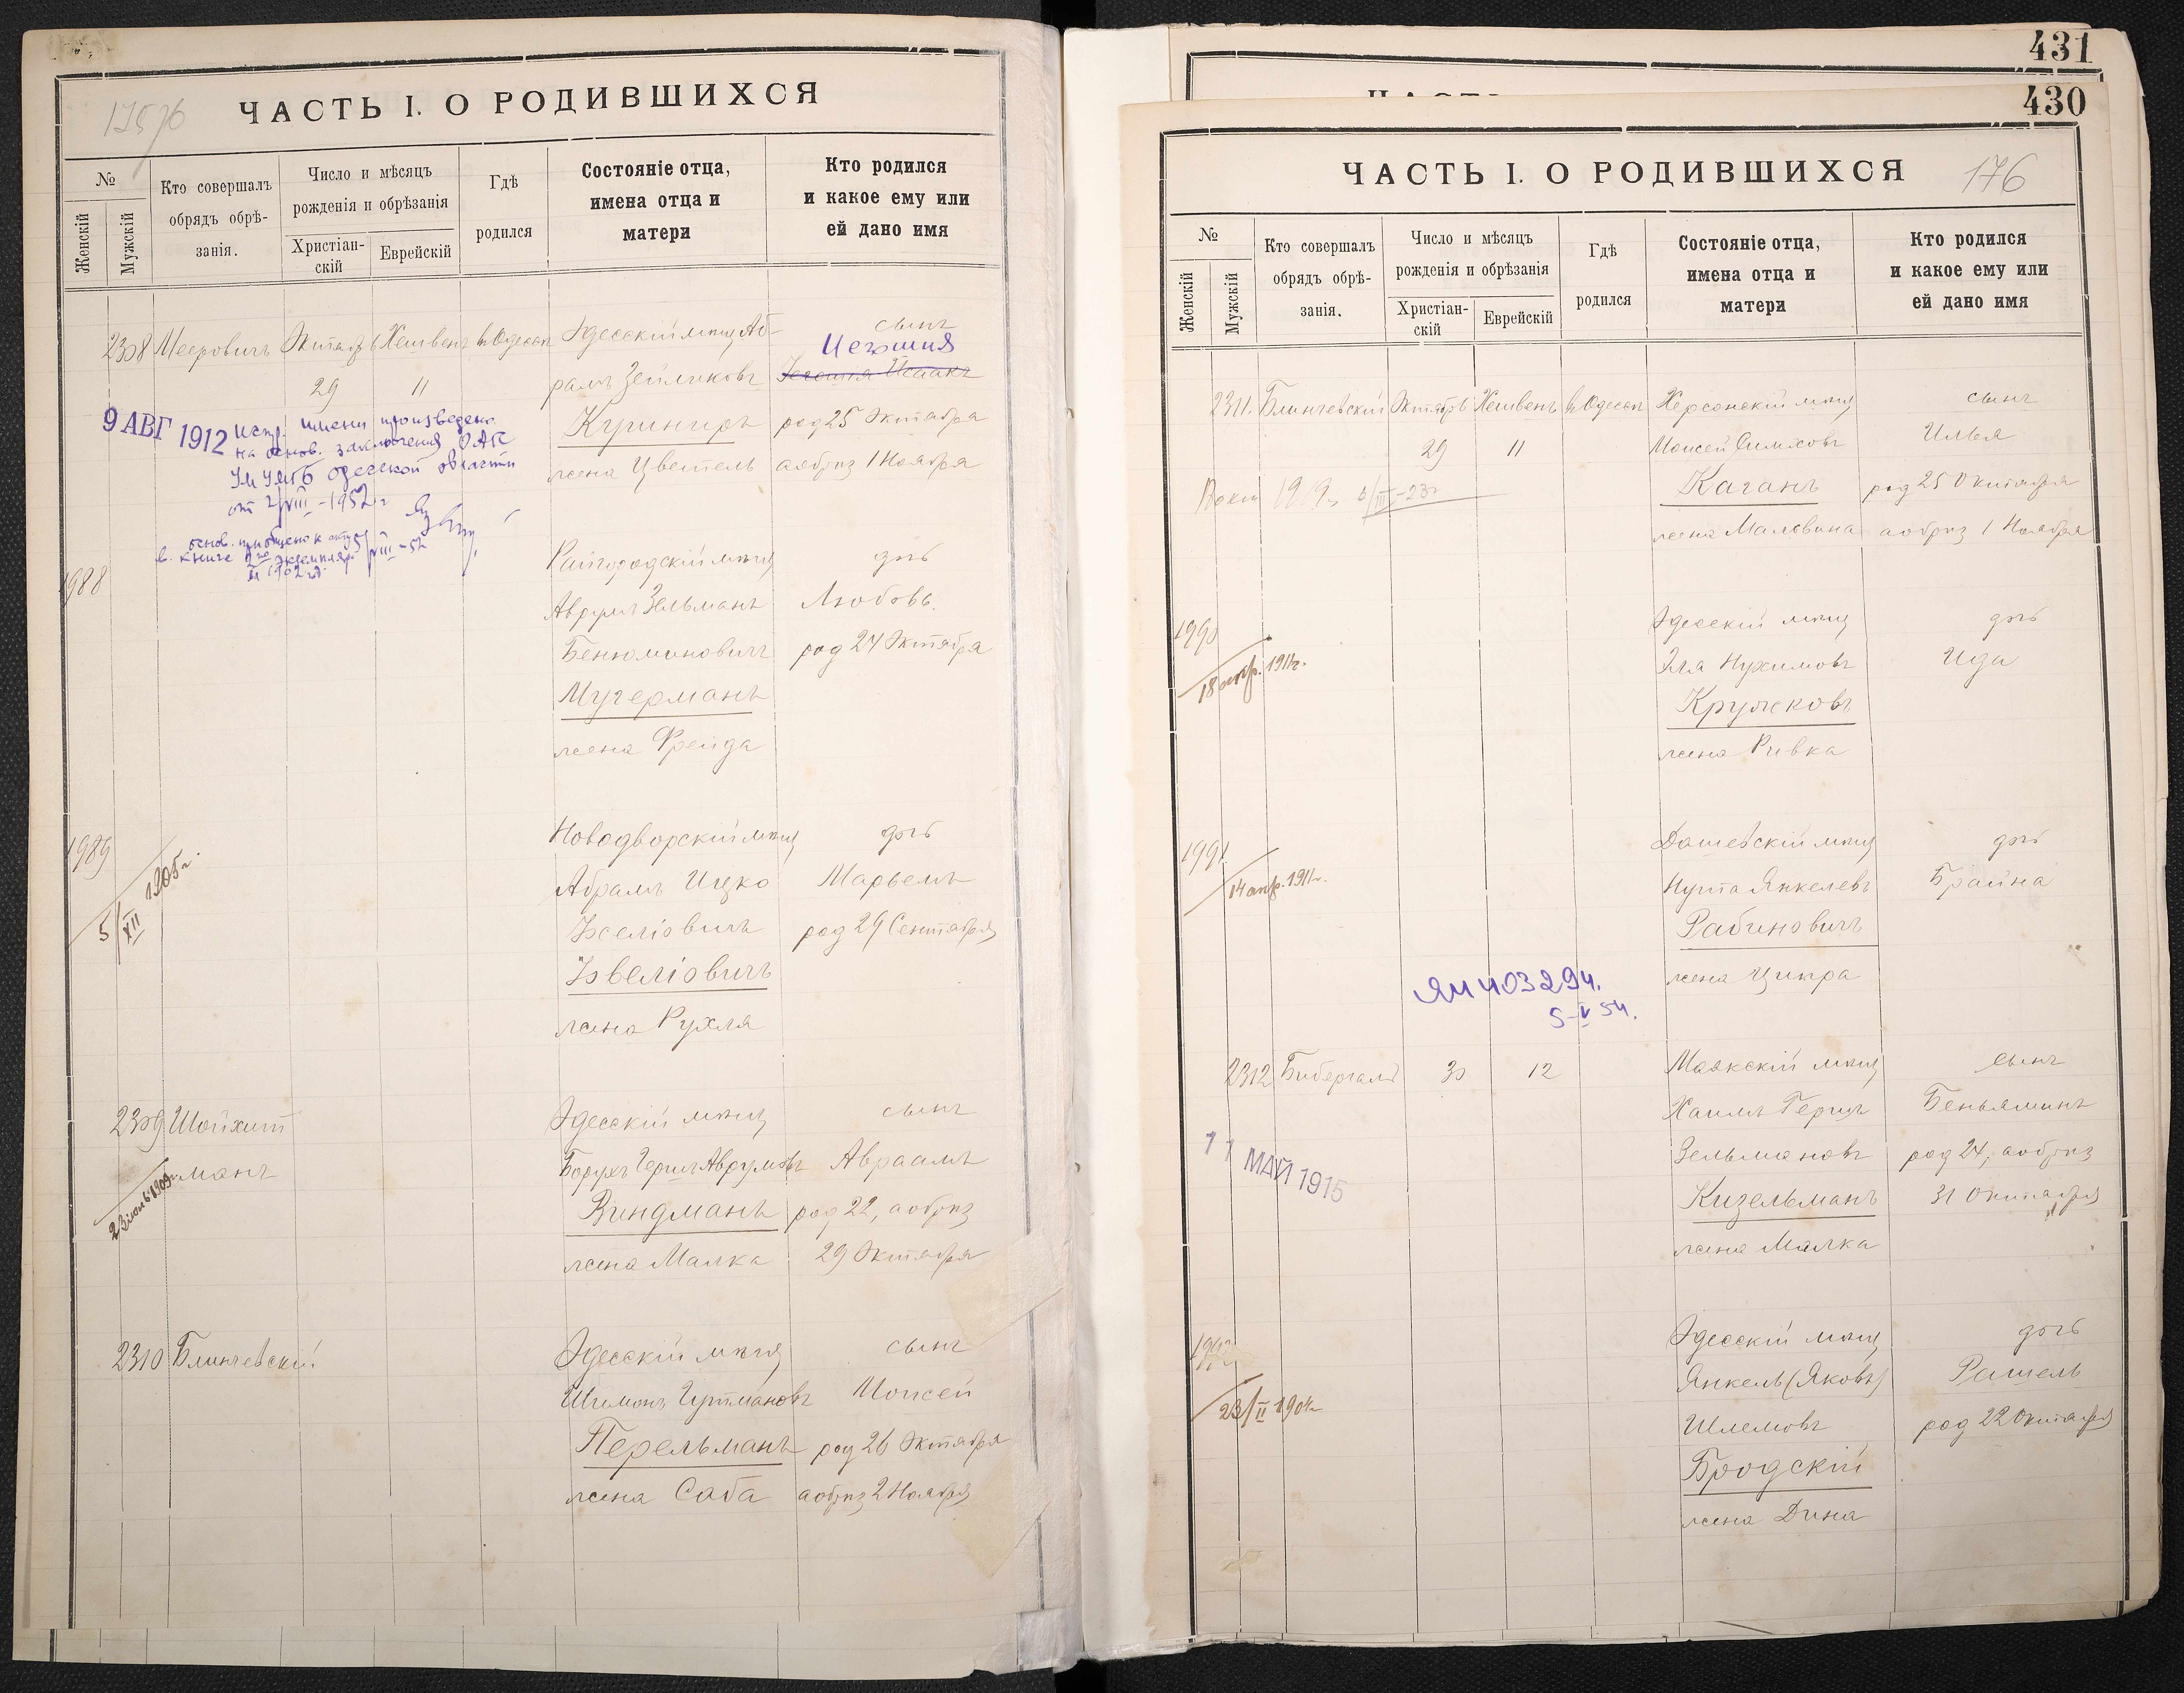 17576
ЧАСТЬ I. О РОДИВШИХСЯ
№
Женскій
Мужскій
Кто совершалъ
обрядъ обрѣ-
занія.
Число и мѣсяцъ
рожденія и обрѣзанія
Христіан-
скій
Еврейскій
Гдѣ
родился
Состояніе отца,
имена отца и
матери
Кто родился
и какое ему или
ей дано имя
2308 Мееровичъ Октябрь Хешвенъ въ Одессѣ Одесскій мѣщ Аб-
рамъ Зейликовъ
29 11
жена Цветель
сынъ
Исаак
род 25 Октября
а обрѣз 1 Ноября
9 АВГ 1912
испр. имени произведено
на основ. заключения ОАГС
УМГБ Одесской области
от 2/VIII-1952 г
основ. приобщено к акту
в книге 2го экземпляра
за 1902 год
VIII-52
1988
Райгородскій мѣщ
Аврумъ Зельманъ
Бенюминовичъ
Мучерманъ
жена Фрейда
дочь
Любовь.
род 24 Октября
1989
5/XII 1905 г.
Новодворскій мѣщ
Абрамъ Ицко
жена Рухля
дочь
Марьемъ
род 29 Сентября
2309 Шойхит
манъ
23 іюль 1909
Одесскій мѣщ
Борухъ Герш Аврумовъ
Виндманъ
жена Малка
сынъ
Авраамъ
род 22, а обрѣз
29 Октября
2310 Блинчевскій
Одесскій мѣщ
Шимонъ
Перельманъ
жена Саба
сынъ
Моисей
род 26 Октября
а обрѣз 2 Ноября
431
430
ЧАСТЬ I. О РОДИВШИХСЯ
176
№
Женскій
Мужскій
Кто совершалъ
обрядъ обрѣ-
занія.
Число и мѣсяцъ
рожденія и обрѣзанія
Христіан-
скій
Еврейскій
Гдѣ
родился
Состояніе отца,
имена отца и
матери
Кто родился
и какое ему или
ей дано имя
2311. Блинчевскій Октябрь Хешвенъ въ Одессѣ Херсонскій мѣщ
29 11
Моисей Симховъ
Каганъ
жена Мальвина
сынъ
Илья
род 25 Октября
а обрѣз 1 Ноября
6/III-23 г
1990
18 апр. 1911 г.
Одесскій мѣщ
Эля Нухимовъ
Кружковъ
жена Ривка
дочь
Ида
1991
14 апр. 1911 г.
Дашевскій мѣщ
Нута Янкелевъ
Рабиновичъ
жена Ципра
дочь
Брайна
ЯМ 403294.
5-V 54.
2312 Бибергалъ 30 12
11 МАЙ 1915
Маякскій мѣщ
Хаимъ Герш
Зельмановъ
Кизельманъ
жена Малка
сынъ
Беньяминъ
род 24, а обрѣз
31 Октября
1992
23/II 1904 г
Одесскій мѣщ
Янкель (Яковъ)
Шлемовъ
Бродскій
жена Дина
дочь
Рашель
род 22 Октября